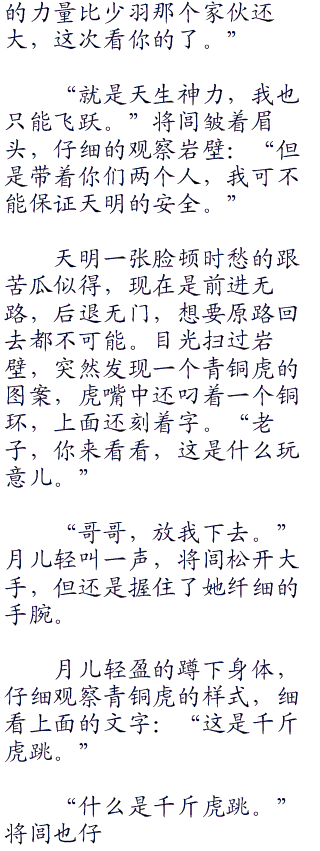 的力量比少羽那个家伙还
大，这次看你的了。”
“就是天生神力，我也
只能飞跃。”将闾皱着眉
头，仔细的观察岩壁：“但
是带着你们两个人，我可不
能保证天明的安全。”
天明一张脸顿时愁的跟
苦瓜似得，现在是前进无
路，后退无门，想要原路回
去都不可能。目光扫过岩
壁，突然发现一个青铜虎的
图案，虎嘴中还叼着一个铜
环，上面还刻着字。“老
子，你来看看，这是什么玩
意儿。”
“哥哥，放我下去。”
月儿轻叫一声，将闾松开大
手，但还是握住了她纤细的
手腕。
月儿轻盈的蹲下身体，
仔细观察青铜虎的样式，细
看上面的文字：“这是千斤
虎跳。”
“什么是千斤虎跳。”
将闾也仔